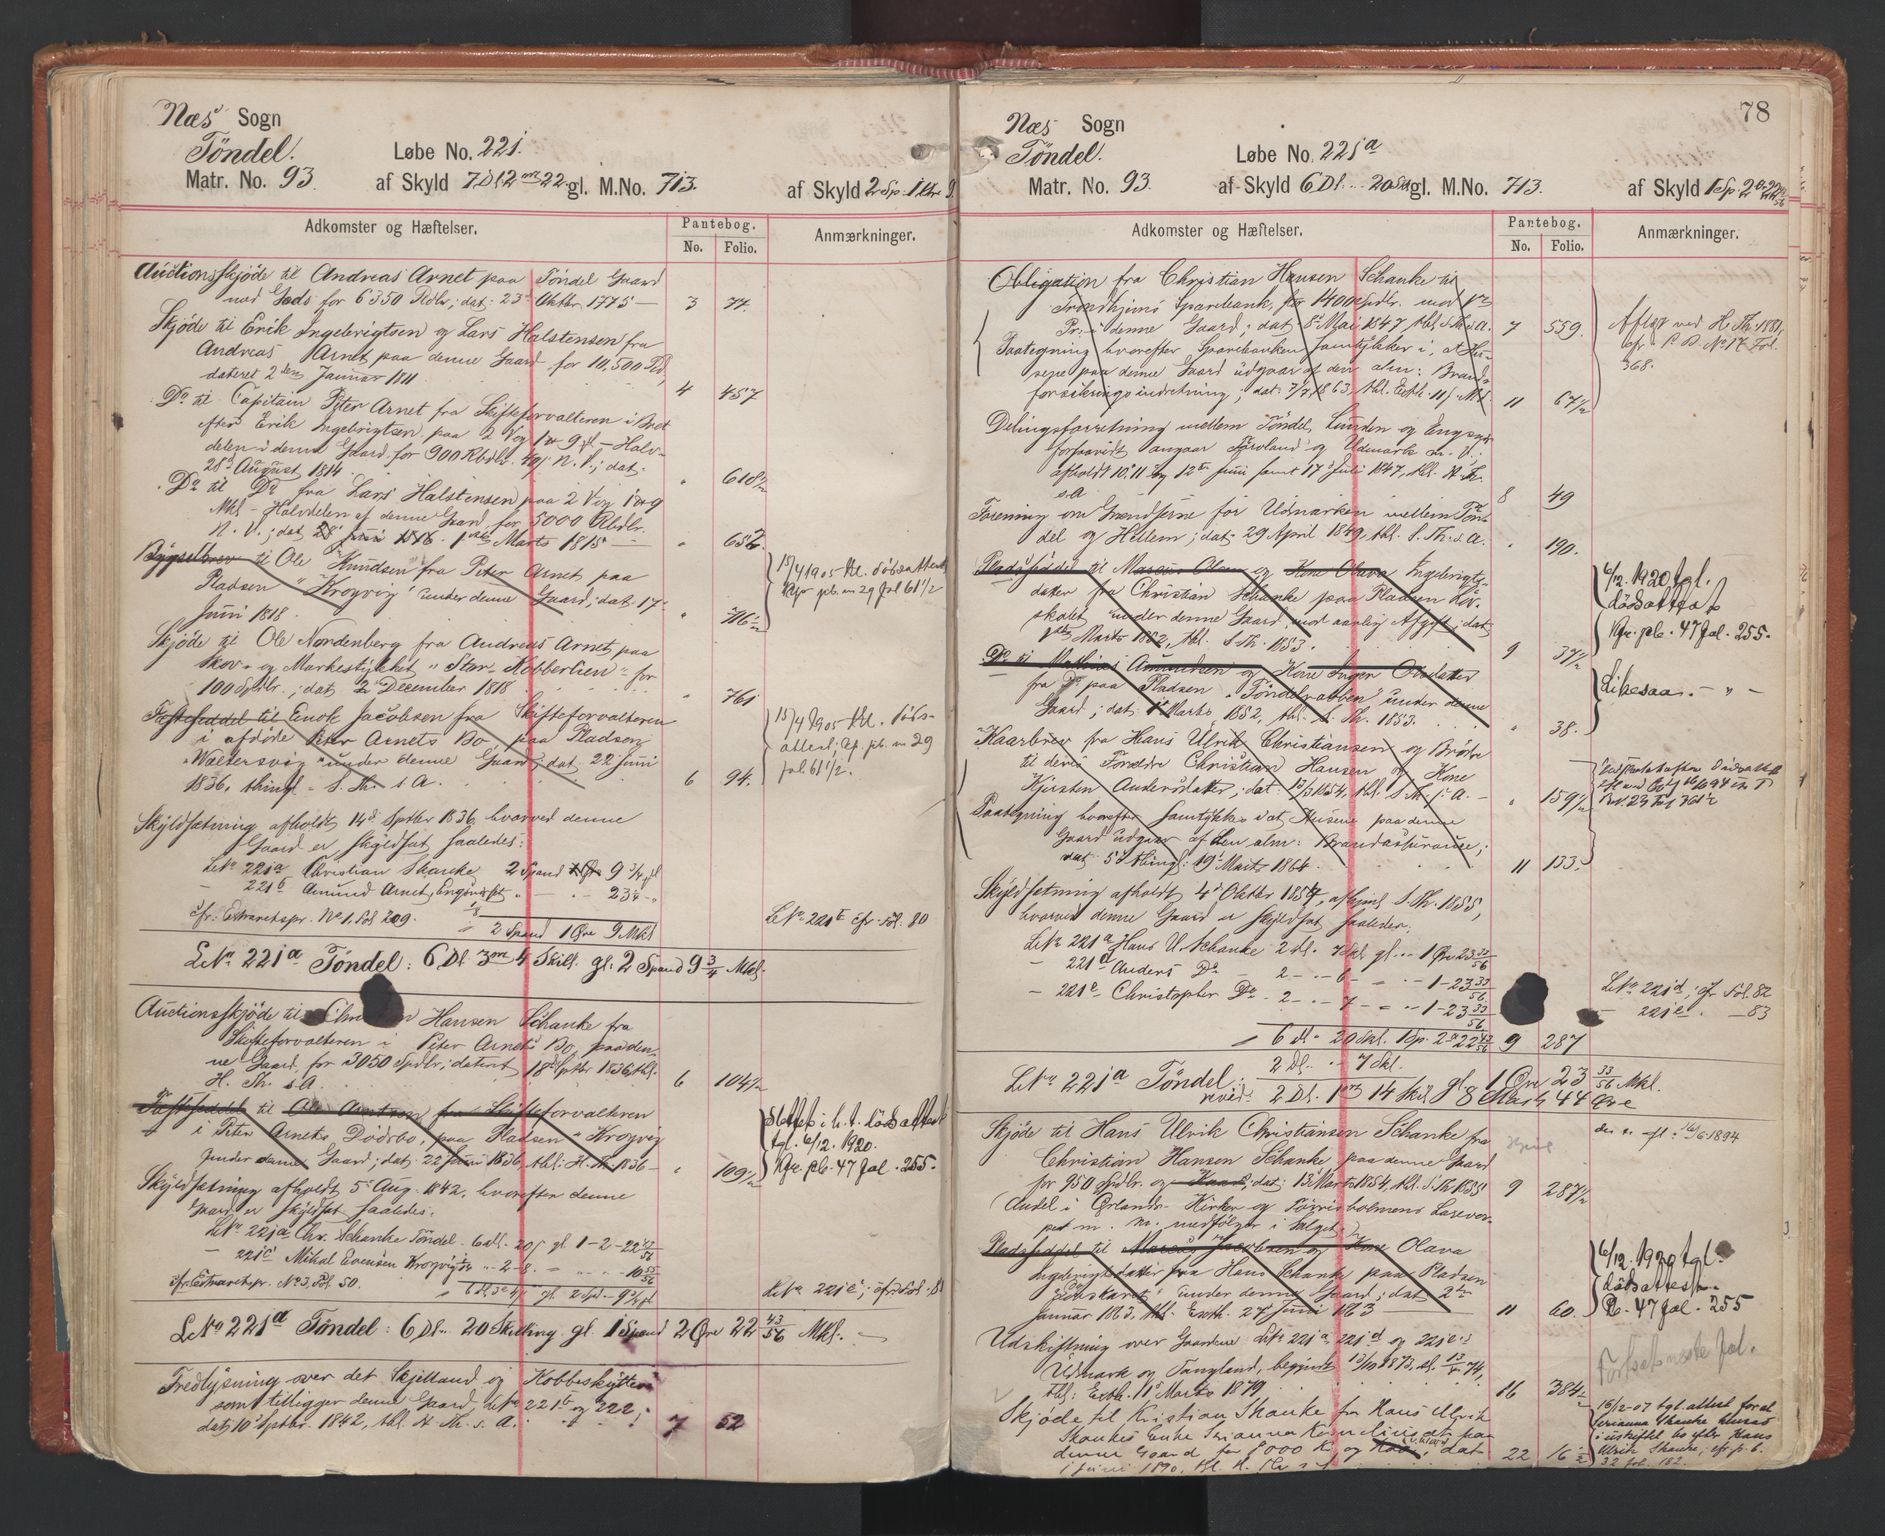 Næs Sogn
Töndel.
Løbe No. 221.
Matr. No. 93. af Skyld 7 Dl 2 m 22 gl. M.No. 713. af Skyld 2 Sp. 1 Øre 9
Adkomster og Hæftelser.
Pantebog.
No. Folio.
Anmærkninger.
Auctionsskjöde til Andreas Arnet paa Töndel Gaard
med Gods for 6350 Rdlr; dat: 23d Oktbr 1775 — 3 74.
Skjöde til Erik Ingebrigtsen og Lars Halstensen fra
Andreas Arnet paa denne Gaard for 10,500 Rd,
dateret 2den Januar 1811 4 457
Do til Capitain Peter Arnet fra Skifteforvalteren i Boet
efter Erik Ingebrigtsen paa 2 Vog 1 Øre 9 — Halv-
delen i denne Gaard for 900 Rbdlr. N. V.; dat:
28d August 1814 " 618½
Do til Do fra Lars Halstensen paa 2 Vog 1 Øre 9
Mkl — Halvdelen af denne Gaard for 5000 Rbdlr
N. V.; dat 1ste Marts 1815 — " 652.
Bygselbrev til Ole Knudsen fra Peter Arnet paa
Pladsen "Krogvig" under denne Gaard; dat: 17
Juni 1818 " 716½
15/4 1905 tbl. dödsattest
Kfr pb. no 29 fol 61½
Skjöde til Ole Nordenberg fra Andreas Arnet paa
Skov- og Markestykket "Stor-Kobberlien" for
100 Spdlr.; dat 2 December 1818 " 761
Fæstesedel til Enok Jacobsen fra Skifteforvalteren
i afdöde Peter Arnets Bo, paa Pladsen
"Waltersvig" under denne Gaard; dat. 22 Juni
1836, thingl. S. Th. s A. 6 94.
15/4 1905 tbl. döds-
attest; cf. pb. no 29
fol. 61½.
Skyldsætning afholdt 14d Sptbr 1836 hvorved denne
Gaard er skyldsat saaledes:
LNo 221a Christian Skancke 2 Spand 9¾
— 221b Amund Arnet, Engen 23¼
cfr: Extraretspr. No 1. Fol 209.
2 Spand 1 Øre 9 Mkl
LNo 221b cfr. Fol. 80
LNo 221a Töndel: 6 Dl 3 m 4 Skill. gl: 2 Spand 9¾ Mkl.
Auctionsskjöde til Christian Hansen Schanke fra
Skifteforvalteren i Peter Arnets Bo, paa den-
ne Gaard, for 3050 Spdlr; dateret 18d Sptbr 1836, tbl.
H. Th. s A. 6 104½
Fæstesedel til Ole Arntsen fra Skifteforvalteren
i Peter Arnets Dödsbo, paa Pladsen "Krogvig"
under denne Gaard; dat: 22 Juni 1836, tbl: H. Th. 1836 — " 109½
Slettet i h. t. dödsattest
tgl. 6/12. 1920.
Kfr. pb. 47 fol. 255.
Skyldsætning afholdt 5 Aug. 1842, hvorefter denne
Gaard er skyldsat saaledes:
LNo 221a Chr. Schanke Töndel 6 Dl. 20 gl 1-2-22 43/56
— 221c Mikal Evensen Krogvig " 2-8. 10 55/56
cfr Extraretspr. No 3. Fol 50.
LNo 221c; cfr Fol. 81
LNo 221a Töndel: 6 Dl. " 20 Skilling gl. 1 Spand 2 Øre 22 43/56 Mkl.
Fredlysning over det Skjelland og Kobbeskytteri
som tilligger denne Gaard, LNo 221b og 222;
dat. 10 Sptbr. 1842, tbl. H. Th. s. A. 7 52
78
Næs Sogn
Töndel.
Løbe No. 221a
Matr. No. 93. af Skyld 6 Dl. " 20 Sk gl. M.No. 713. af Skyld 1 Sp. 2 Ør 22 43/56
Adkomster og Hæftelser.
Pantebog.
No. Folio.
Anmærkninger.
Obligation fra Christian Hansen Schanke til
Trondhjems Sparebank, for 1400 Spdlr. mod 1ste
Pr. i denne Gaard; dat 8 Mai 1847 tbl S. Th. s. A. 7 559.
Paategning hvorefter Sparebanken samtykker i, at Hu-
sene paa denne Gaard udgaar af den alm: Brand-
forsikringsindretning; dat: 7/2 1863, tbl. Extb. 11 67½
Aflæst ved H. Th. 1881,
cfr. P. B. No 17 Fol.
368.
Delingsforretning mellem Töndel, Lunden og Engen
forsaavidt angaar Jordland og Udmark m. v.
afholdt 10, 11 og 12te Juni samt 17 Juli 1847, tbl. H. Th.
s A 8 49
Forening om Grændserne for Udmarken mellem Tön-
del og Hellem; dat: 29 April 1849, tbl. S. Th. s. A. " 190.
Pladsseddel til Marcus Olsen og Kone Olava Ingebrigts-
datter fra Christian Schanke paa Pladsen
under denne Gaard, mod aarlig Afgift; dat
1ste Marts 1852, tbl. S. Th. 1853. 9 37½
6/12. 1920 tgl.
dödsattest
Kfr. pb. 47 fol. 255.
Do til Mathias Amundsen og Kone Inger Olsdatter
fra Do paa Pladsen "Töndelrabben" under denne
Gaard; dat: 1 Marts 1852, tbl. S. Th. 1853. " 38.
Likesaa. — " —
Kaarbrev fra Hans Ulrik Christiansen og Brödre
til deres Forældre Christian Hansen og Kone
Kjersten Andersdatter; dat: 13/3 1854, tbl. S. Th. s. A. — " 159½
Paategning hvorefter samtykkes at Husene paa denne
Gaard udgaar af den alm: Brandassurance;
dat. 5 thingl: 19 Marts 1864. 11 133.
Skyldsætning afholdt 4d Oktbr 1854, afhjml S. Th. 1855,
hvorved denne Gaard er skyldsat saaledes:
LNo 221a Hans U. Schanke 2 Dl. " 7 Skl gl " 1 Øre 23 33/56
— 221d Anders Do — 2 — " — 6 — " 1-23 33/56
— 221e Christopher Do — 2 — " — 7 — " 1-23 33/56
6 Dl " 20 Skl. 1 Sp. 2 Ø 22 43/56 9 287
LNo 221d; cfr Fol. 82
— 221e. — 83
LNo 221a Töndel: 2 Dl. " 7 Skl. 1 Øre 23 33/56 Mkl.
revid: 2 Dl. 1 ort 14 Skil. gl 8 Mark 44 Øre
Skjöde til Hans Ulrik Christiansen Schanke fra
Christian Hansen Schanke paa denne Gaard
for 950 Spdlr. og Kaar; dat: 13 Marts 1854, tbl. S. Th 1855 9 287½
Andel i Ørlands Kirker og
m. m. medfölger i Salget.
Pladsseddel til Marcus Jacobsen og Kone Olava
Ingebrigtsdatter fra Hans Schanke paa Pladsen
under denne Gaard; dat 2den
Januar 1863, tbl. Extb. 27 Juni 1863 — 11 60.
6/12. 1920 tgl.
dödsattest.
Pb. 47 fol. 255
Udskiftning over Gaardene LNo 221a, 221d og 221e's
Udmark og Tangland, begyndt 13/10 1873, sl. 13/4 74,
tbl: Extb. 11 Marts 1879. 16 384½
Fortsat neste fol.
Skjöde til Kristian Skanke fra Hans Ulrik
Skankes Enke Serianna Korneliusdt paa
denne Gaard for 8000 Kr. og Kaar, dat
1 Juni 1890, tbl. H. Th. s A 22 16½
16/12-07 tgl. attest for at
Serianna Skanke hensad
i uskiftet bo efter Hans
Ulrik Skanke, cfr p. b.
32 fol. 182.